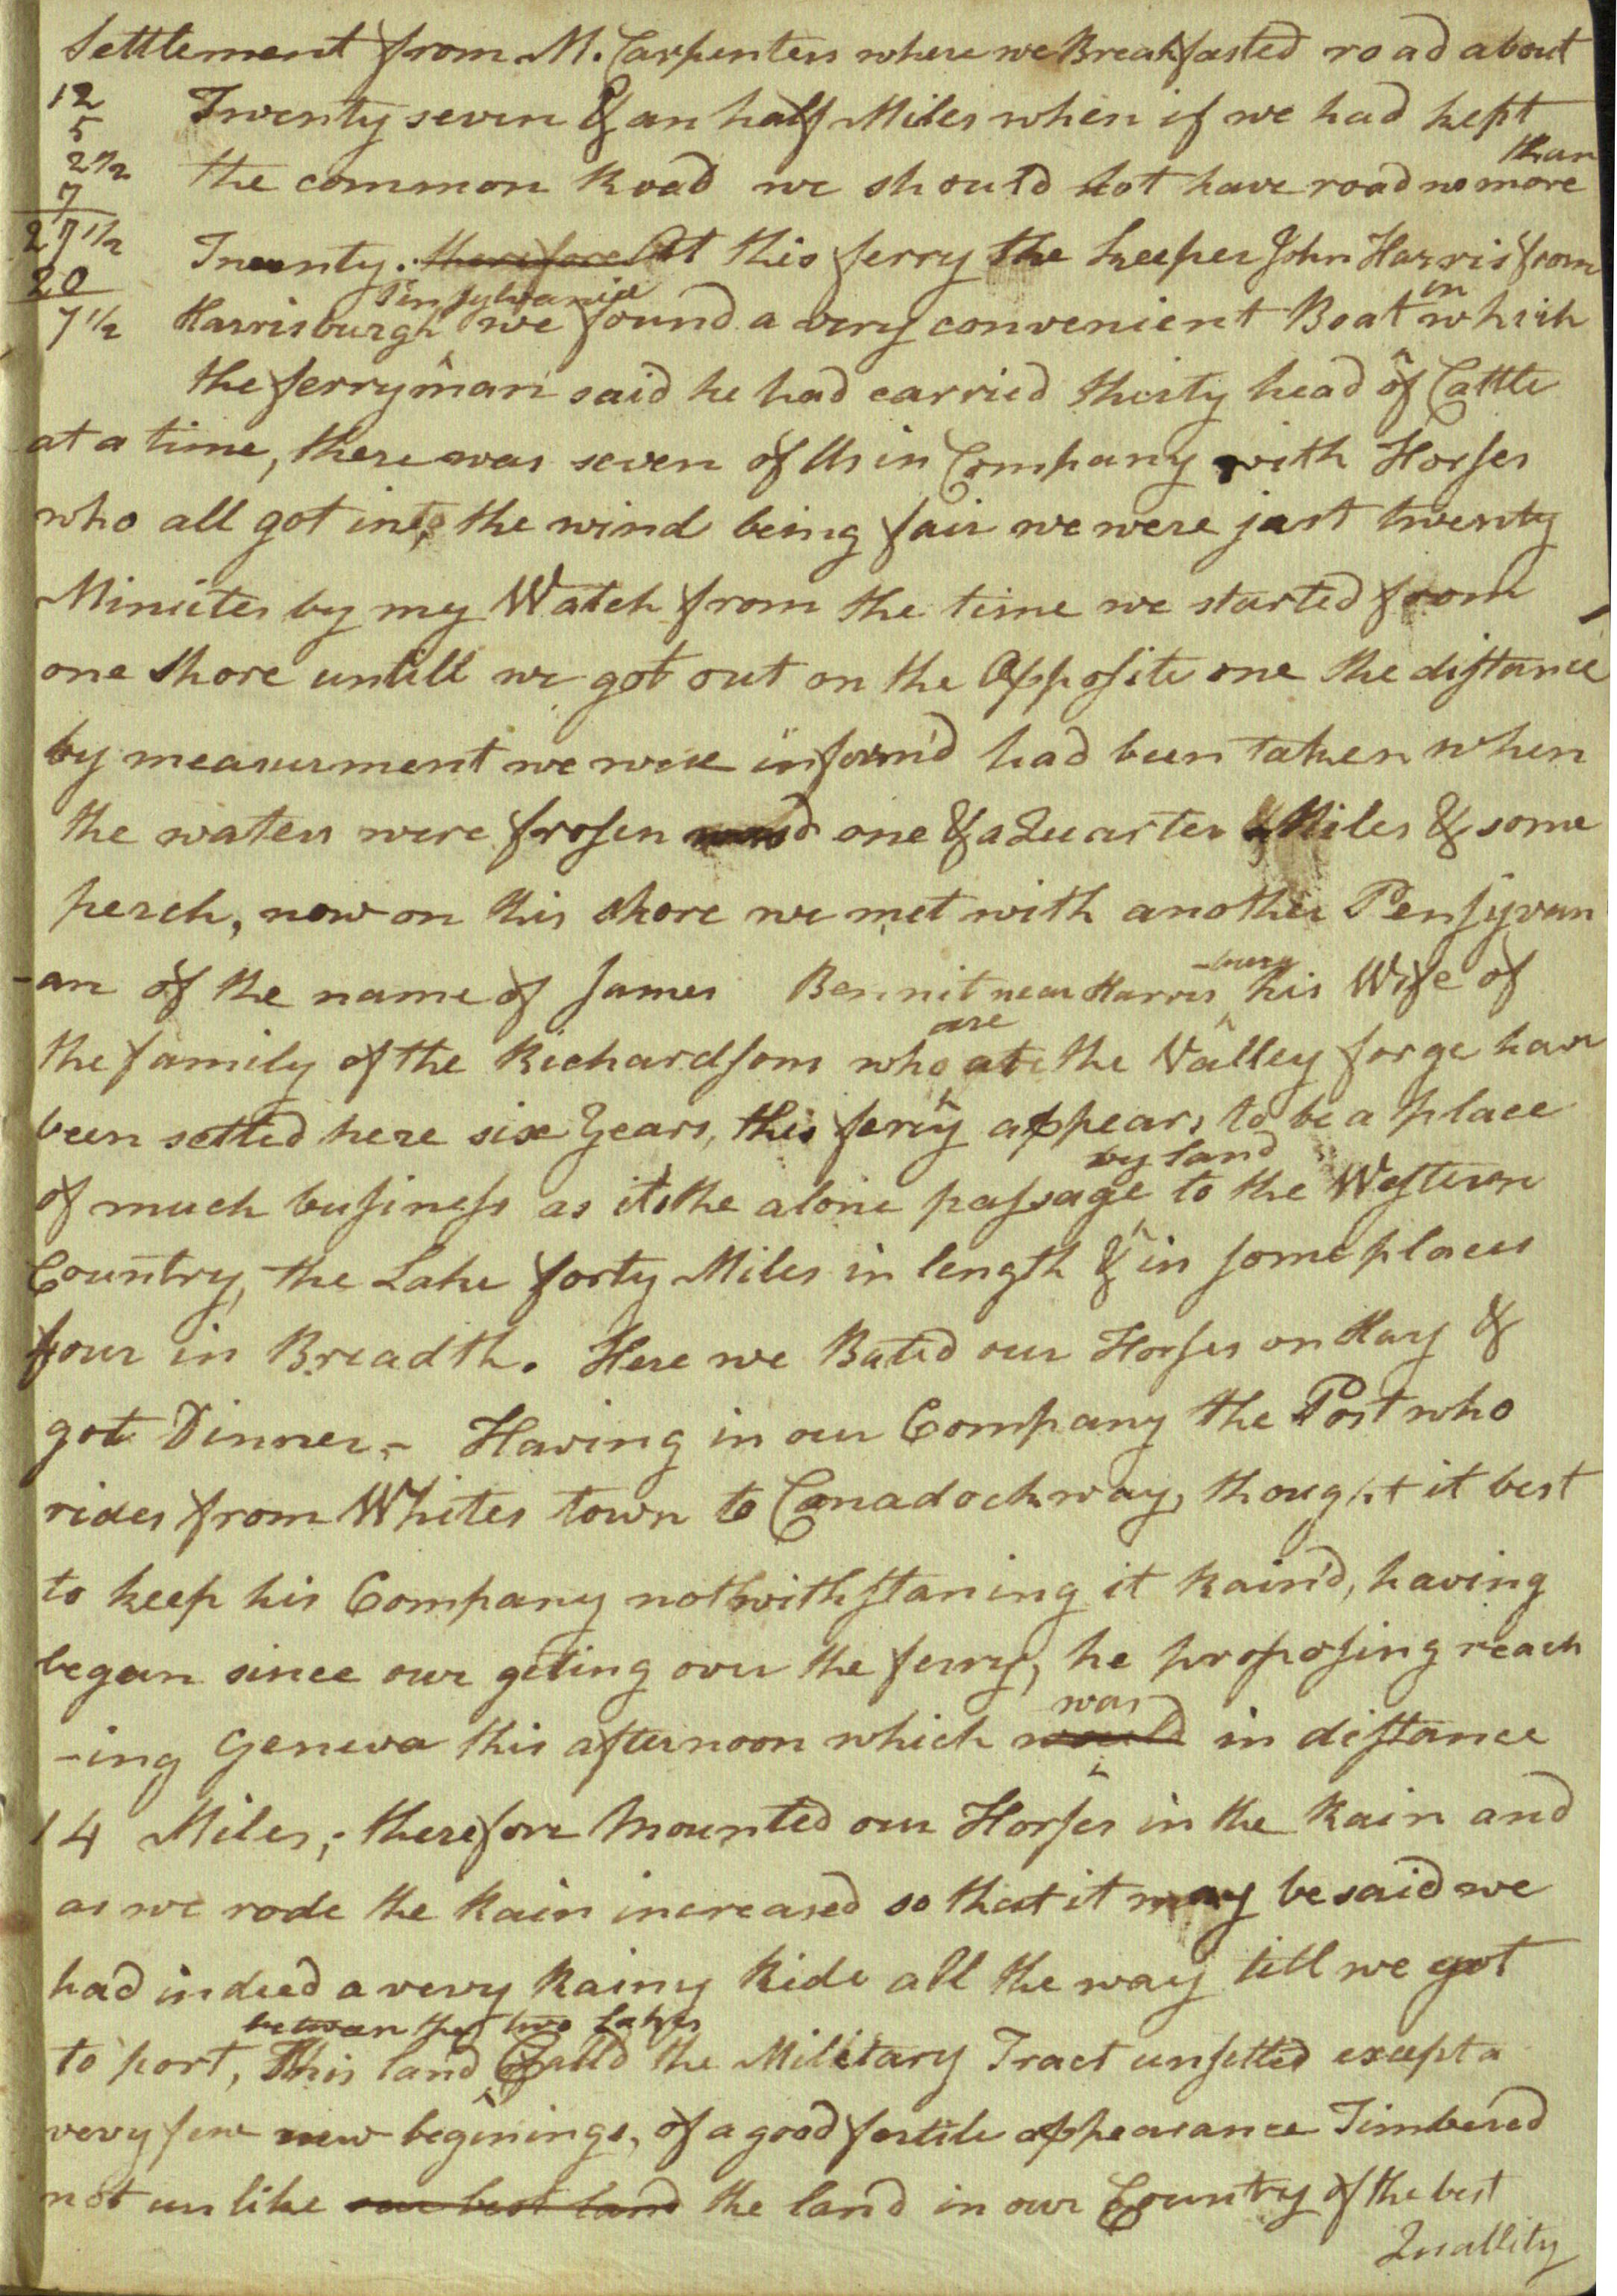 Settlement from M. Carpenters where we Breakfasted road about
12 Twenty seven & an half Miles when if we had kept
5
2 1/2 the common Road we should not have road no more than
7
27 1/2 Twenty. therefore At this ferry the keeper John Harris from
20
7 1/2 Harrisburgh Pensylvania we found a very convenient Boat in which
the ferryman said he had carried thirty head of Cattle
at a time, there was seven of Us in Company with Horses
who all got into, the wind being fair we were just twenty
Minutes by my Watch from the time we started from
one Shore untill we got out on the Opposite one the distance
by measurment we were inform'd had been taken when
the waters were frosen one & a Quarter Miles & some
perch, now on this shore we met with another Pensyvan
-an of the name of James Bennit near Harris-burg his Wife of
the family of the Richardsons who are at the Valley forge have
been settled here six Years, this ferry appears to be a place
of much business as it's the alone passage by land to the Western
Country, the Lake forty Miles in length & in some places
four in Breadth. Here we Bated our Horses on Hay &
got Dinner,- Having in our Company the Post who
rides from Whites town to Canadockway, thought it best
to keep his Company nothwithstaning it Rain'd, having
began since our geting over the ferry, he proposing reach
-ing Geneva this afternoon which would was in distance
14 Miles; therefore Mounted our Horses in the Rain and
as we rode the Rain increased so that it may be said we
had indeed a very Rainy Ride all the way till we got
to port, This land between the two Lakes Called the Military Tract unsettled except a
very few new beginings, of a good fertile appearance Timbered
not unlike our best land the land in our Country of the best
Quallity